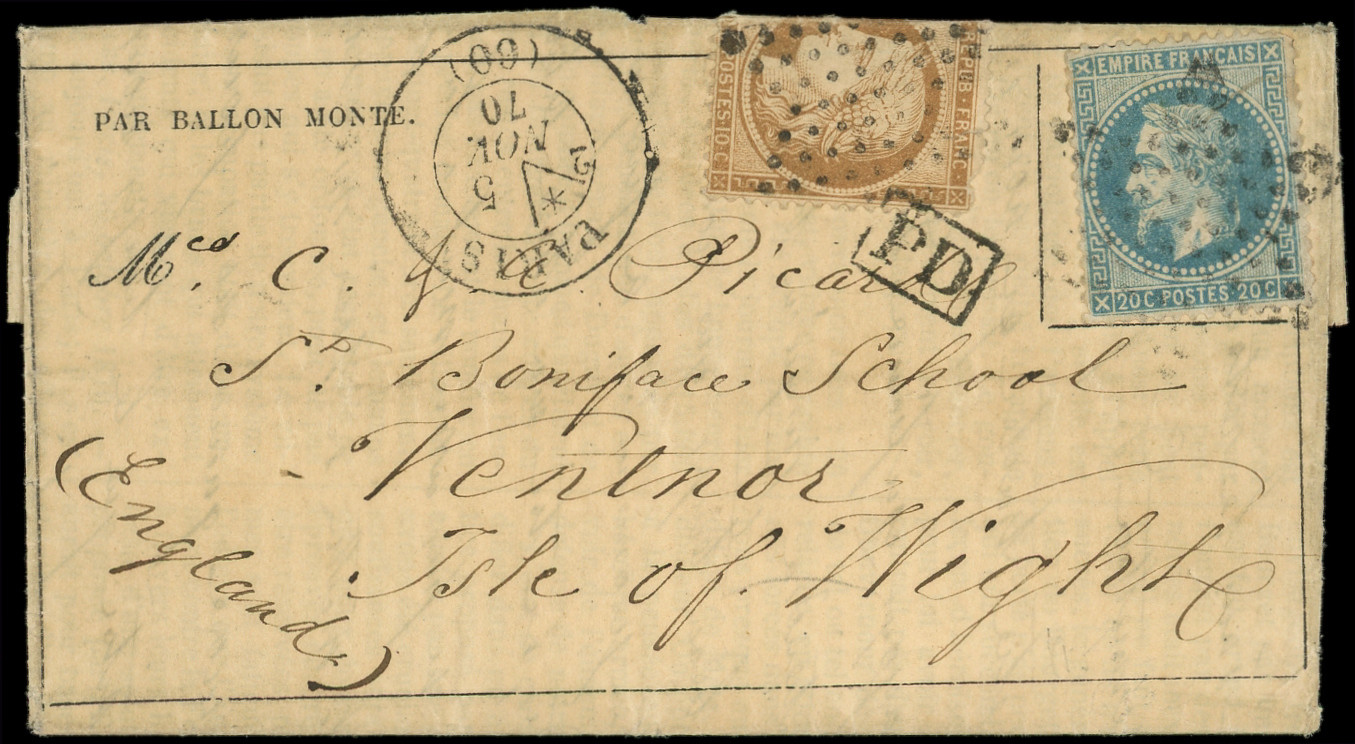 PAR BALLON MONTE.
PARIS
(60)
5
NOV
70
REPUB · FRANC ·
POSTES 10 C
PD
EMPIRE FRANCAIS
20 C POSTES 20 C
C. J. C. Picard
St. Boniface School
Ventnor
Isle of Wight
(England)